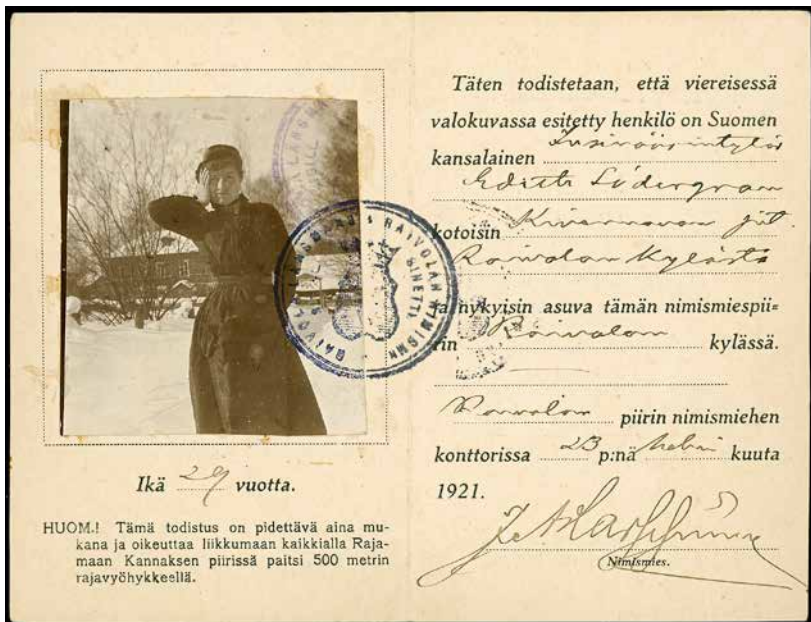 Ikä 29 vuotta.
HUOM.! Tämä todistus on pidettävä aina mu-
kana ja oikeuttaa liikkumaan kaikkialla Raja-
maan Kannaksen piirissä paitsi 500 metrin
rajavyöhykkeellä.
RAIVOLAN NIMISM
SINETTI
Täten todistetaan, että viereisessä
valokuvassa esitetty henkilö on Suomen
kansalainen Insinöörintytär
Edith Södergran
kotoisin Kivennavan pit.
Raivolan Kylästä
ja nykyisin asuva tämän nimismiespii=
rin Raivolan kylässä.
Raivolan piirin nimismiehen
konttorissa 23 p:nä helmi kuuta
1921.
Nimismies.